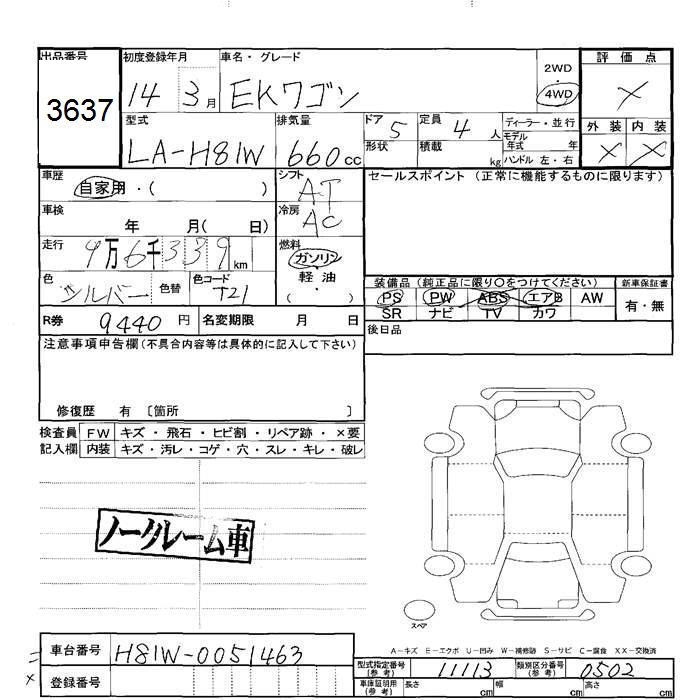 出品番号 初度登録年月 車名・グレード 評価点
3637 14 3月 EKワゴン 2WD
4WD X
型式 排気量 ドア 5 定員 4人 ディーラー・並行 外装 内装
LA-H81W 660cc 形状 積載 kg モデル年式 年 X X
ハンドル 左・右
車歴 自家用・( ) シフト AT セールスポイント (正常に機能するものに限ります)
車検 年 月( 日) 冷房 AC
走行 9万6千339km 燃料 ガソリン
軽油
色 シルバー 色替 色コード T21 ( )
装備品 (純正品に限り○をつけてください) 新車保証書
PS PW ABS エアB AW 有・無
SR ナビ TV カワ
R券 9440円 名変期限 月 日 後日品
注意事項申告欄(不具合内容等は具体的に記入して下さい)
修復歴 有 〔箇所 〕
検査員 FW キズ・飛石・ヒビ割・リペア跡・×要
記入欄 内装 キズ・汚レ・コゲ・穴・スレ・キレ・破レ
ノークレーム車
スペア
A-キズ E-エクボ U-凹み W-補修跡 S-サビ C-腐食 XX-交換済
車台番号 H81W-0051463
登録番号
型式指定番号(参考) 11113 類別区分番号(参考) 0502
車庫証明用(参考) 長さ cm 幅 cm 高さ cm